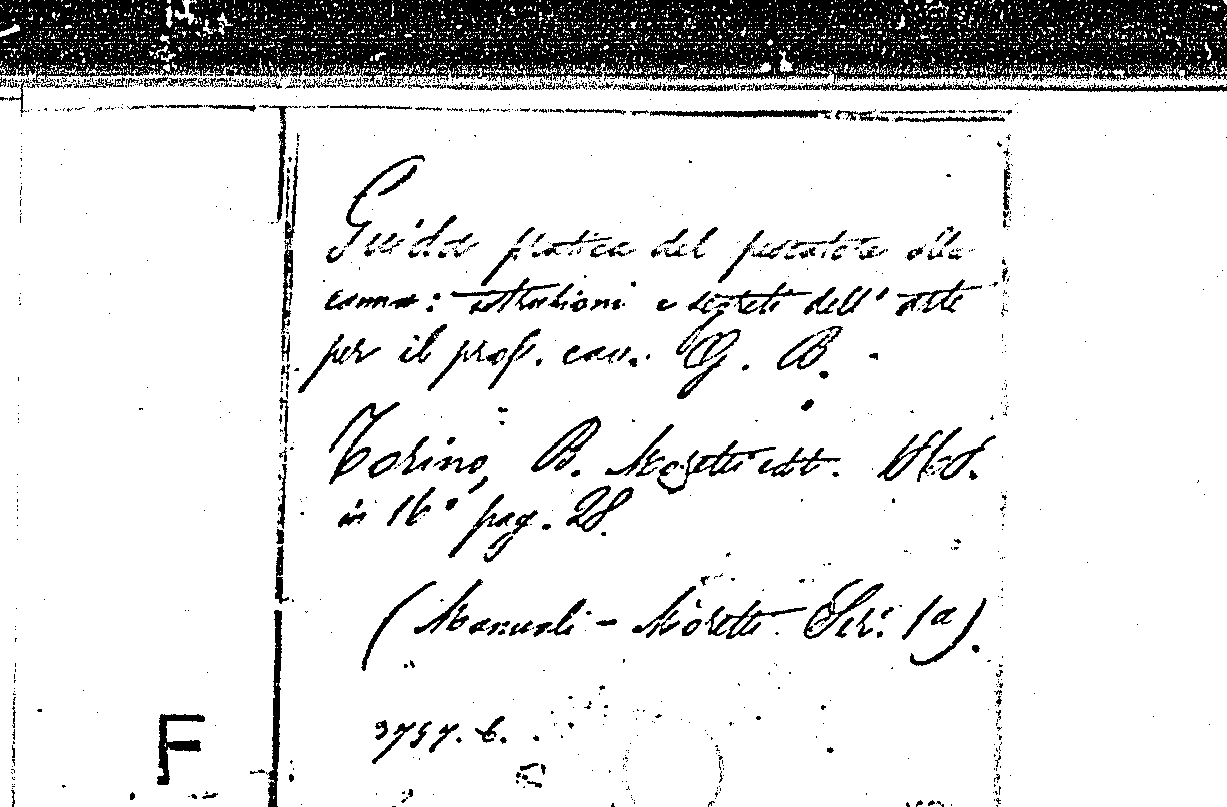 Guida pratica del pescatore alla
canna: istruzioni e segreti dell'arte
per il prof. cav. G. B.
Torino, B. Moretti edit. 1868.
in 16° pag. 28.
(Manuali - Moretti Ser. 1a).
3757. 6.
F